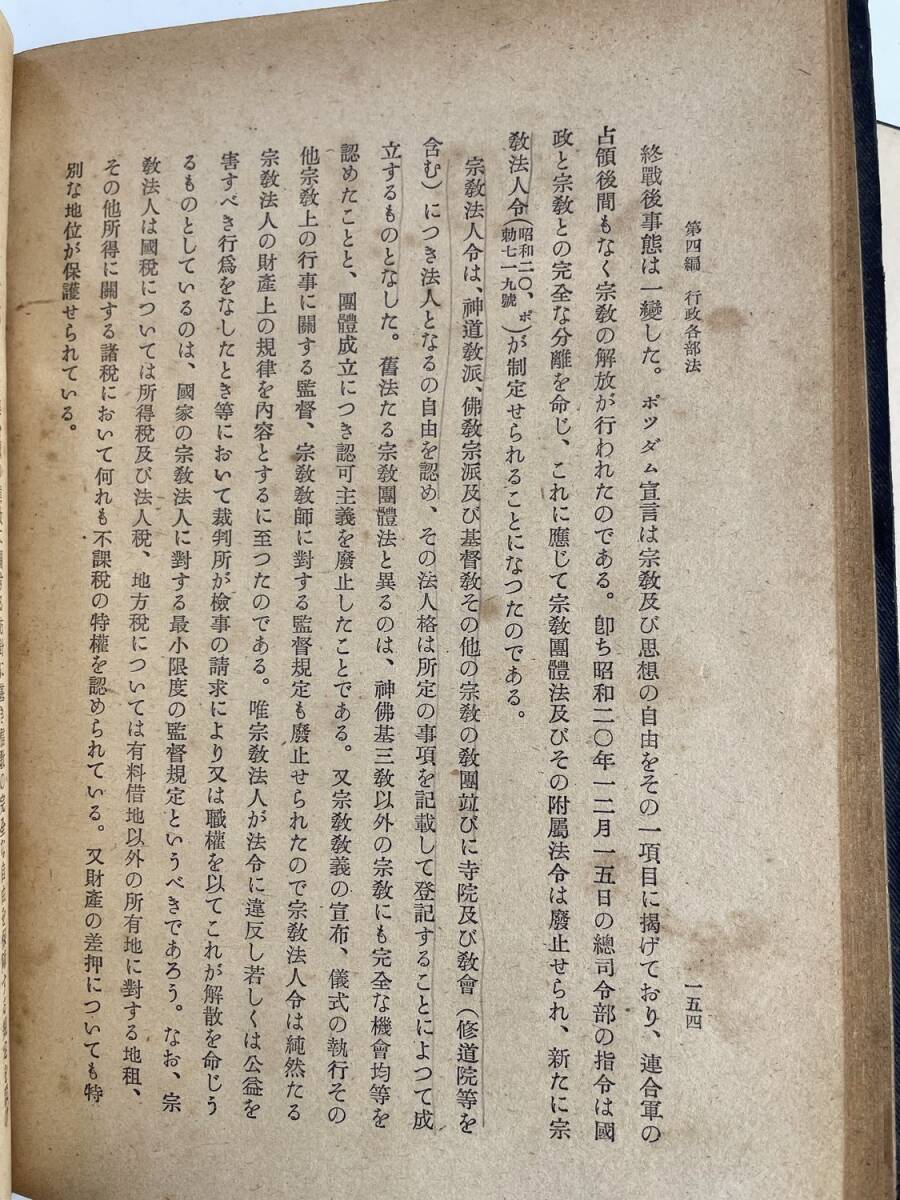 第四編　行政各部法
一五四
終戰後事態は一變した。ポツダム宣言は宗教及び思想の自由をその一項目に揭げており、連合軍の
占領後間もなく宗教の解放が行われたのである。卽ち昭和二〇年一二月一五日の總司令部の指令は國
政と宗教との完全な分離を命じ、これに應じて宗教團體法及びその附屬法令は廢止せられ、新たに宗
教法人令（昭和二〇、ポ勅七一九號）が制定せられることになつたのである。
宗教法人令は、神道教派、佛教宗派及び基督教その他の宗教の教團竝びに寺院及び教會（修道院等を
含む）につき法人となるの自由を認め、その法人格は所定の事項を記載して登記することによつて成
立するものとなした。舊法たる宗教團體法と異るのは、神佛基三教以外の宗教にも完全な機會均等を
認めたことと、團體成立につき認可主義を廢止したことである。又宗教教義の宣布、儀式の執行その
他宗教上の行事に關する監督、宗教教師に對する監督規定も廢止せられたので宗教法人令は純然たる
宗教法人の財產上の規律を內容とするに至つたのである。唯宗教法人が法令に違反し若しくは公益を
害すべき行爲をなしたとき等において裁判所が檢事の請求により又は職權を以てこれが解散を命じう
るものとしているのは、國家の宗教法人に對する最小限度の監督規定というべきであろう。なお、宗
教法人は國稅については所得稅及び法人稅、地方稅については有料借地以外の所有地に對する地租、
その他所得に關する諸稅において何れも不課稅の特權を認められている。又財產の差押についても特
別な地位が保護せられている。